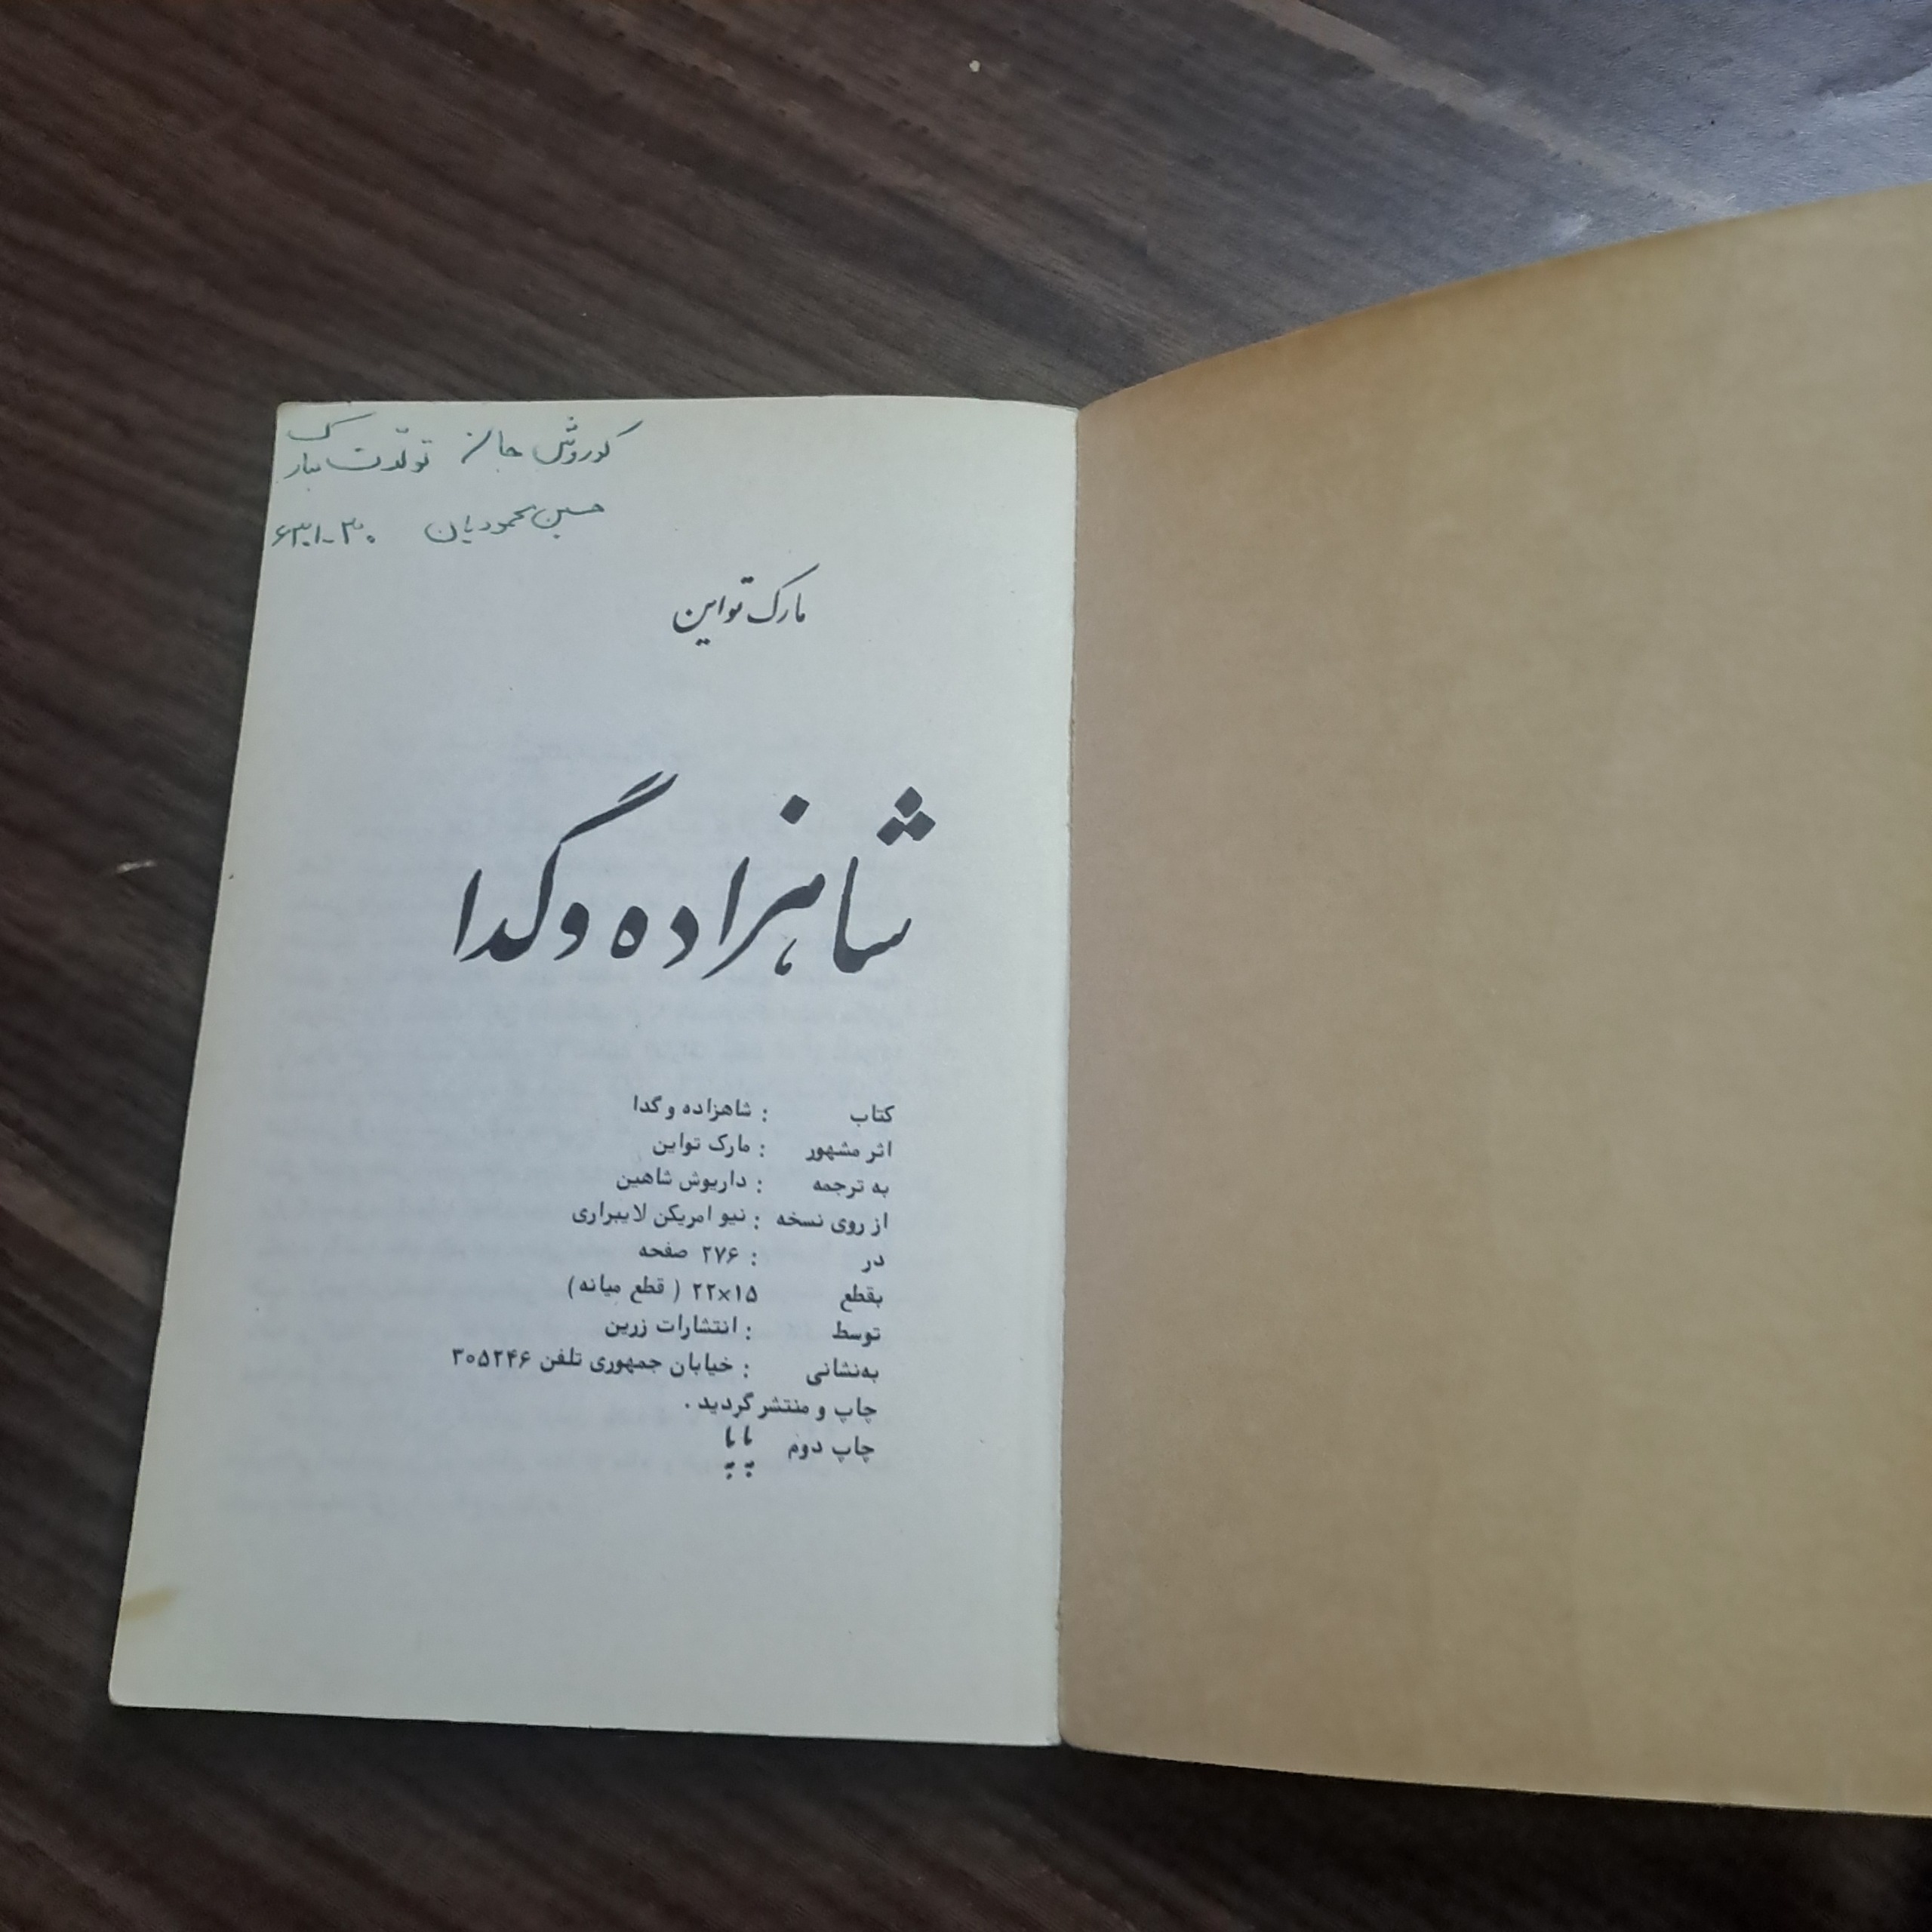 کوروش جان تولّدت مبارک
حسین محمودیان ۳۰-۱-۶۳
مارک تواین
شاهزاده و گدا
کتاب : شاهزاده و گدا
اثر مشهور : مارک تواین
به ترجمه : داریوش شاهین
از روی نسخه : نیو امریکن لایبراری
در : ۲۷۶ صفحه
بقطع ۲۲×۱۵ ( قطع میانه)
توسط : انتشارات زرین
به‌نشانی : خیابان جمهوری تلفن ۳۰۵۲۴۶
چاپ و منتشر گردید .
چاپ دوم